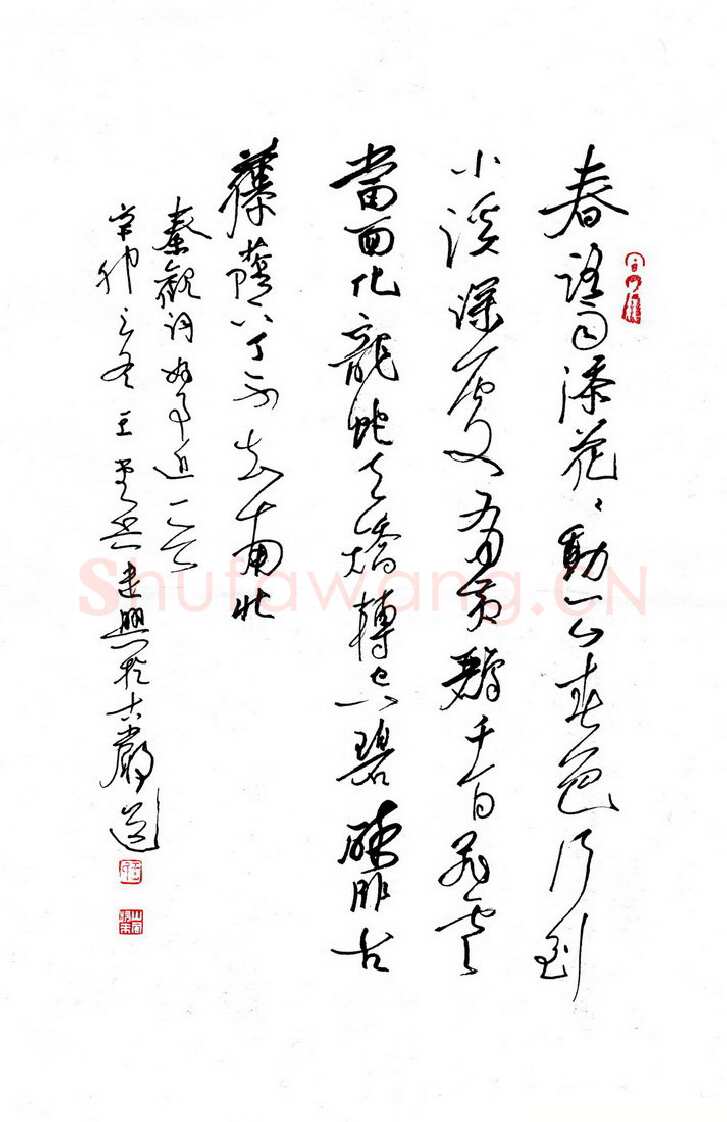 春路雨添花〻動一山春色行到
小溪深處有黃鸝千百飛雲
當面化龍蛇夭矯轉空碧醉卧古
藤蔭下了不知南北
秦觀詞好事近一首
辛卯之冬王書於古嚴道
Shufawang.CN